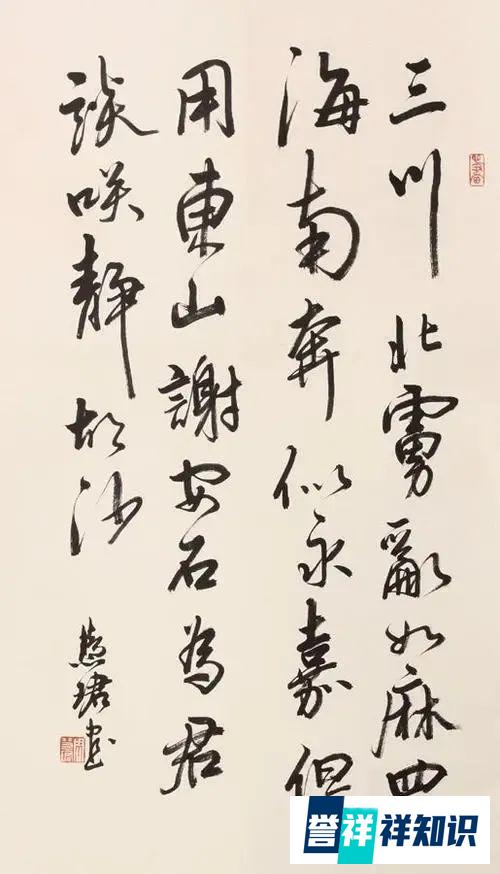 三川北虏亂如麻四
海南奔似永嘉但
用東山謝安石為君
談咲静胡沙
誉祥祥知识